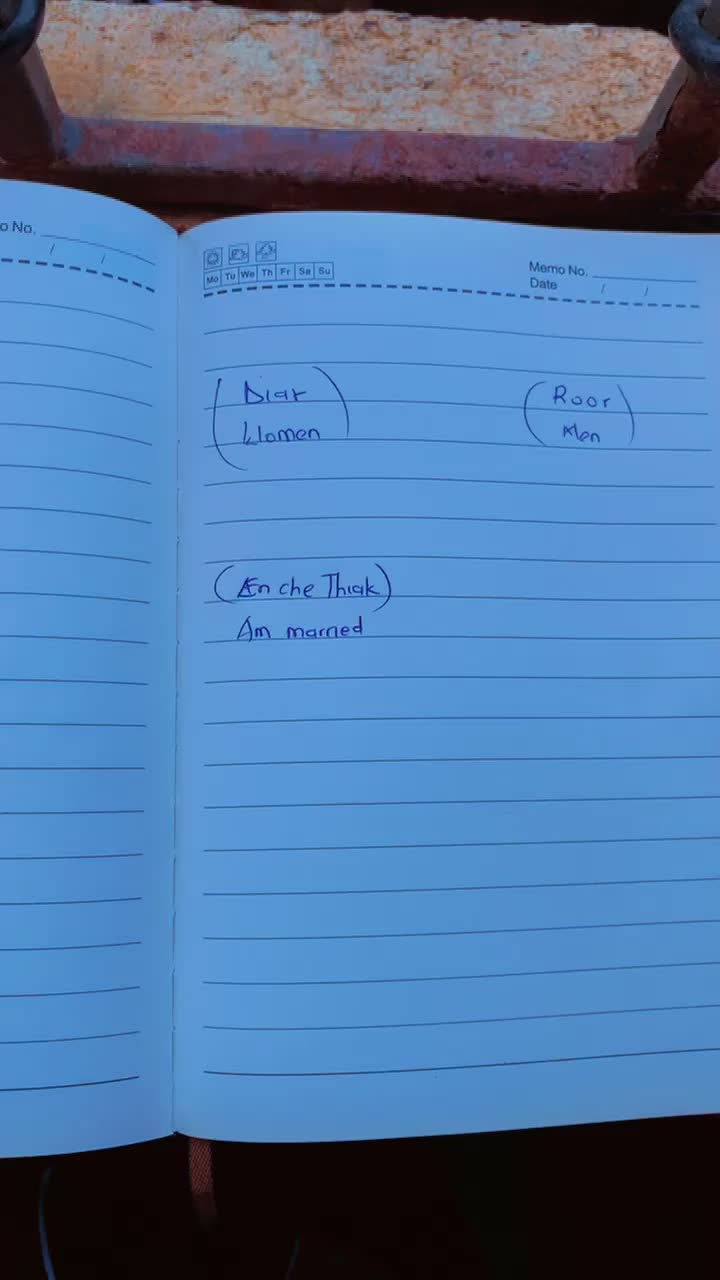 o No.
/ /
Mo Tu We Th Fr Sa Su
Memo No.
Date / /
(Diar) (Roor)
Women Men
(Æn che Thiak)
Am married